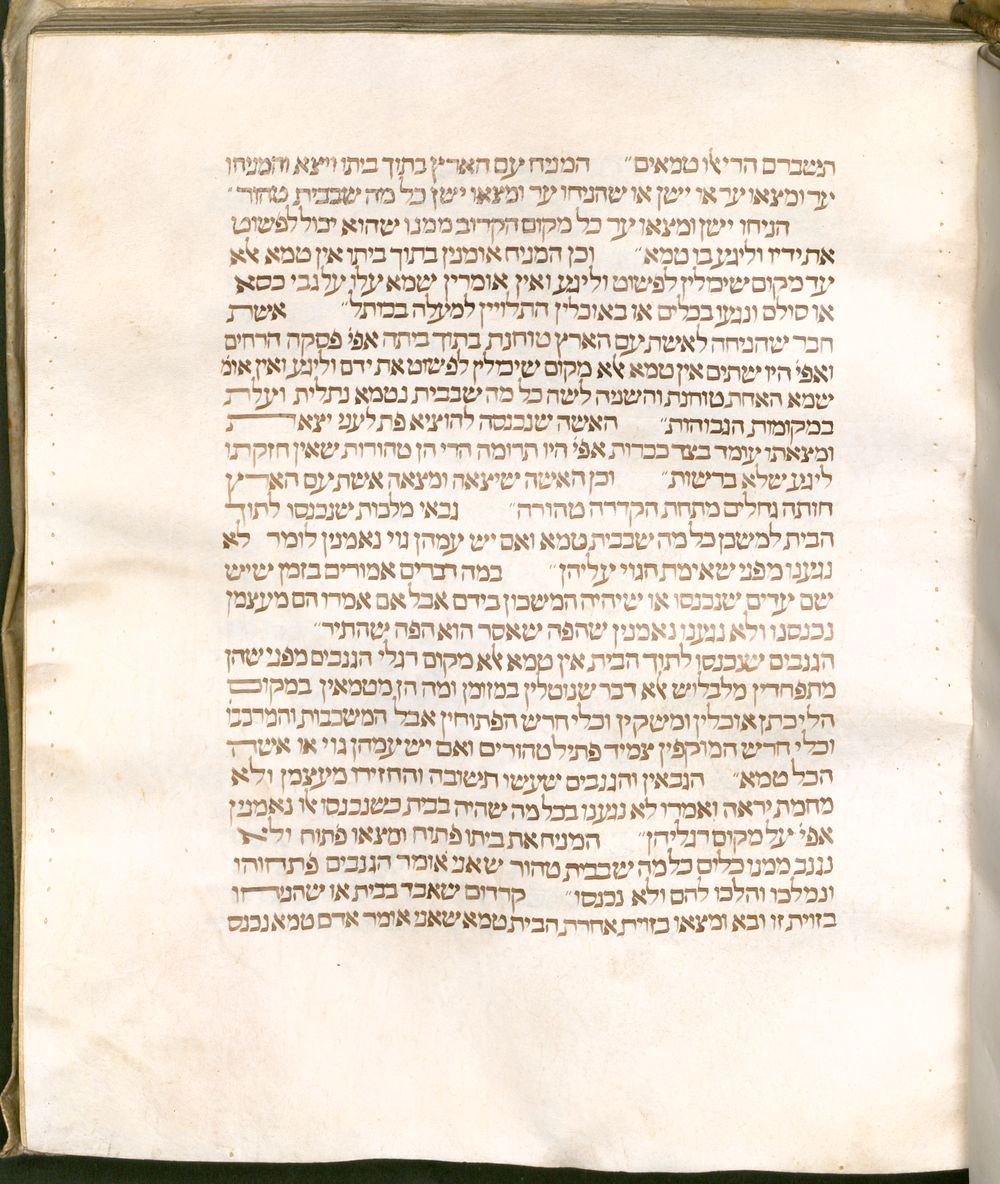 תשברם הרי אלו טמאים״ המניח עם הארץ בתוך ביתו ויצא והמניחו
ער ומצאו ער או ישן או שהניחו ער ומצאו ישן כל מה שבבית טהור״
הניחו ישן ומצאו ער כל מקום הקרוב ממנו שהוא יכול לפשוט
את ידיו וליגע בו טמא״ וכן המניח אומנין בתוך ביתו אין טמא אלא
עד מקום שיכולין לפשוט וליגע ואין אומרין שמא עלו על גבי כסא
או סולם ונגעו בכלים או באוכלין התלויין למעלה בכותל״ אשת
חבר שהניחה לאשת עם הארץ טוחנת בתוך ביתה אפי׳ פסקה הרחים
ואפי׳ היו שתים אין טמא אלא מקום שיכולין לפשוט את ידם וליגע ואין אומ׳
שמא האחת טוחנת והשניה לשה כל מה שבבית נטמא נתלית ועלת
במקומות הגבוהות״ האשה שנכנסה להוציא פת לעני יצאת
ומצאתו עומד בצד ככרות אפי׳ היו תרומה הרי הן טהורות שאין חזקתו
ליגע שלא ברשות״ וכן האשה שיצאה ומצאה אשת עם הארץ
חותה גחלים מתחת הקדרה טהורה״ גבאי מלכות שנכנסו לתוך
הבית למשכן כל מה שבבית טמא ואם יש עמהן גוי נאמנין לומר לא
נגענו מפני שאימת הגוי עליהן״ במה דברים אמורים בזמן שיש
שם עדים שנכנסו או שיהיה המשכון בידם אבל אם אמרו הם מעצמן
נכנסנו ולא נגענו נאמנין שהפה שאסר הוא הפה שהתיר״
הגנבים שנכנסו לתוך הבית אין טמא אלא מקום רגלי הגנבים מפני שהן
מתפחדין מלבלוש אלא דבר שנוטלין במזומן ומה הן מטמאין במקום
הליכתן אוכלין ומשקין וכלי חרש הפתוחין אבל המשכבות והמרכבו׳
וכלי חריש המוקפין צמיד פתיל טהורים ואם יש עמהן גוי או אשה
הכל טמא״ הגבאין והגנבים שעשו תשובה והחזירו מעצמן ולא
מחמת יראה ואמרו לא נגענו בכל מה שהיה בבית כשנכנסו אלו נאמנין
אפי׳ על מקום רגליהן״ המניח את ביתו פתוח ומצאו פתוח ולא
נגנב ממנו כלום כל מה שבבית טהור שאני אומר הגנבים פתחוהו
ונמלכו והלכו להם ולא נכנסו״ קרדום שאבד בבית או שהניחו
בזוית זו ובא ומצאו בזוית אחרת הבית טמא שאני אומר אדם טמא נכנס